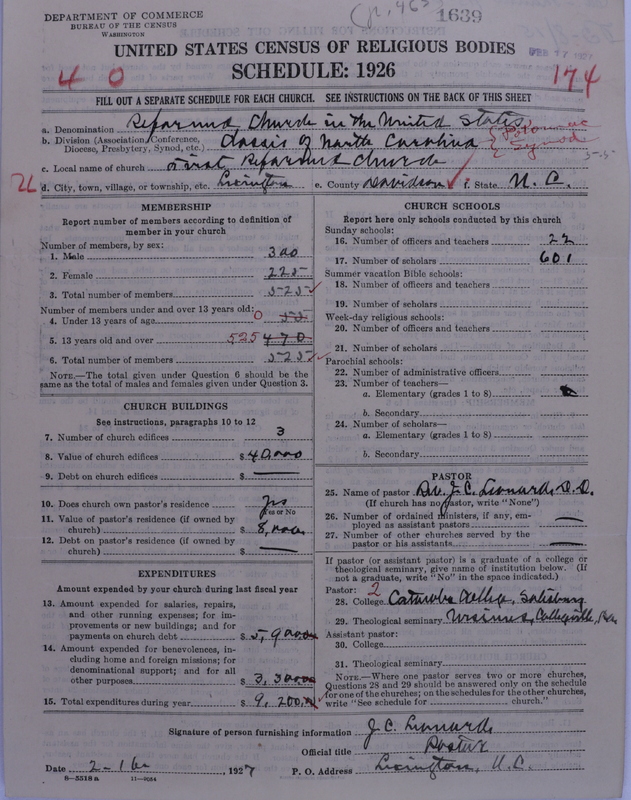 DEPARTMENT OF COMMERCE
BUREAU OF THE CENSUS
WASHINGTON
1639
UNITED STATES CENSUS OF RELIGIOUS BODIES
SCHEDULE: 1926
4 0
174
FILL OUT A SEPARATE SCHEDULE FOR EACH CHURCH. SEE INSTRUCTIONS ON THE BACK OF THIS SHEET
a. Denomination Reformed Church in the United States
b. Division (Association, Conference, Diocese, Presbytery, Synod, etc.) Classis of North Carolina { Potomac Synod
c. Local name of church First Reformed Church
d. City, town, village, or township, etc. Lexington e. County Davidson f. State N. C.
MEMBERSHIP
Report number of members according to definition of
member in your church
Number of members, by sex:
1. Male 300
2. Female 225
3. Total number of members 525
Number of members under and over 13 years old:
4. Under 13 years of age 0 55
5. 13 years old and over 525 470
6. Total number of members 525
NOTE.—The total given under Question 6 should be the
same as the total of males and females given under Question 3.
CHURCH BUILDINGS
See instructions, paragraphs 10 to 12
7. Number of church edifices 3
8. Value of church edifices $ 40,000
9. Debt on church edifices $ —
10. Does church own pastor's residence Yes
Yes or No
11. Value of pastor's residence (if owned by
church) $ 8,000
12. Debt on pastor's residence (if owned by
church) $ —
EXPENDITURES
Amount expended by your church during last fiscal year
13. Amount expended for salaries, repairs,
and other running expenses; for im-
provements or new buildings; and for
payments on church debt $ 5,900
14. Amount expended for benevolences, in-
cluding home and foreign missions; for
denominational support; and for all
other purposes $ 3,300
15. Total expenditures during year $ 9,200
CHURCH SCHOOLS
Report here only schools conducted by this church
Sunday schools:
16. Number of officers and teachers 22
17. Number of scholars 601
Summer vacation Bible schools:
18. Number of officers and teachers
19. Number of scholars
Week-day religious schools:
20. Number of officers and teachers
21. Number of scholars
Parochial schools:
22. Number of administrative officers
23. Number of teachers—
a. Elementary (grades 1 to 8)
b. Secondary
24. Number of scholars—
a. Elementary (grades 1 to 8)
b. Secondary
PASTOR
25. Name of pastor Rev. J. C. Leonard, D. D.
(If church has no pastor, write "None")
26. Number of ordained ministers, if any, em-
ployed as assistant pastors —
27. Number of other churches served by the
pastor or his assistants —
If pastor (or assistant pastor) is a graduate of a college or
theological seminary, give name of institution below. (If
not a graduate, write "No" in the space indicated.)
Pastor: 2
28. College Catawba College, Salisbury
29. Theological seminary Ursinus, Collegeville, Pa.
Assistant pastor:
30. College
31. Theological seminary
NOTE.—Where one pastor serves two or more churches,
Questions 28 and 29 should be answered only on the schedule
for one of the churches; on the schedules for the other churches,
write "See schedule for church."
Signature of person furnishing information J. C. Leonard
Official title Pastor
Date 2-16, 1927 P. O. Address Lexington, N. C.
8—5518a 11—9084